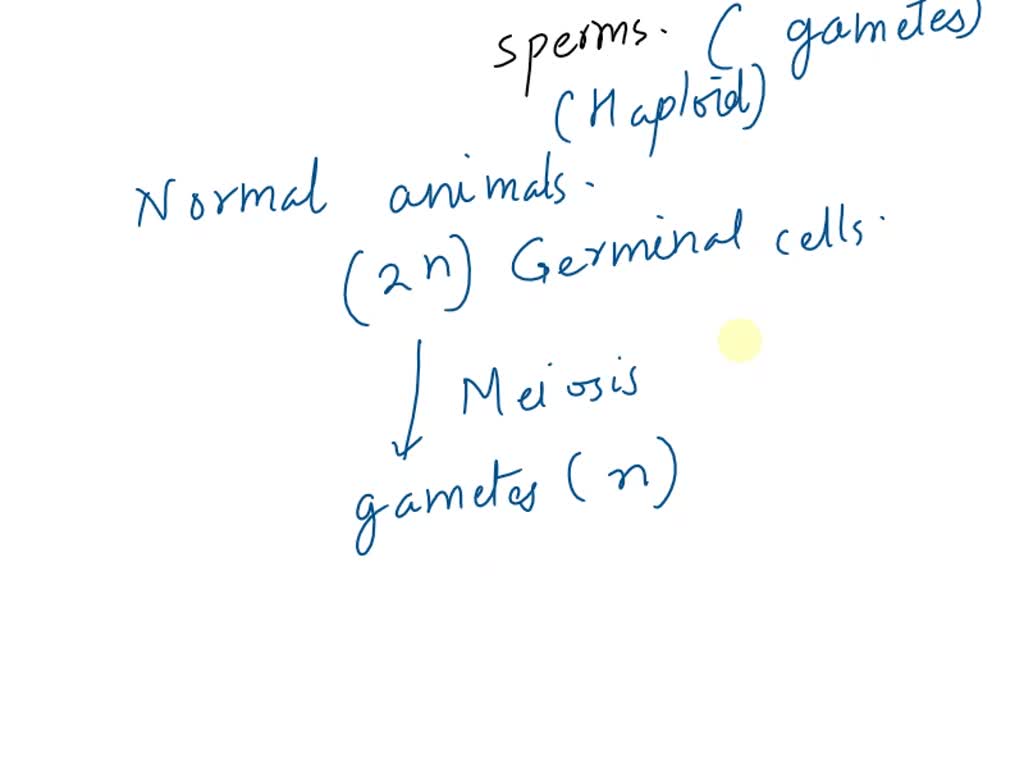 sperms. (gametes)
(Haploid)
Normal animals.
(2n) Germinal cells.
Meiosis
gametes (n)